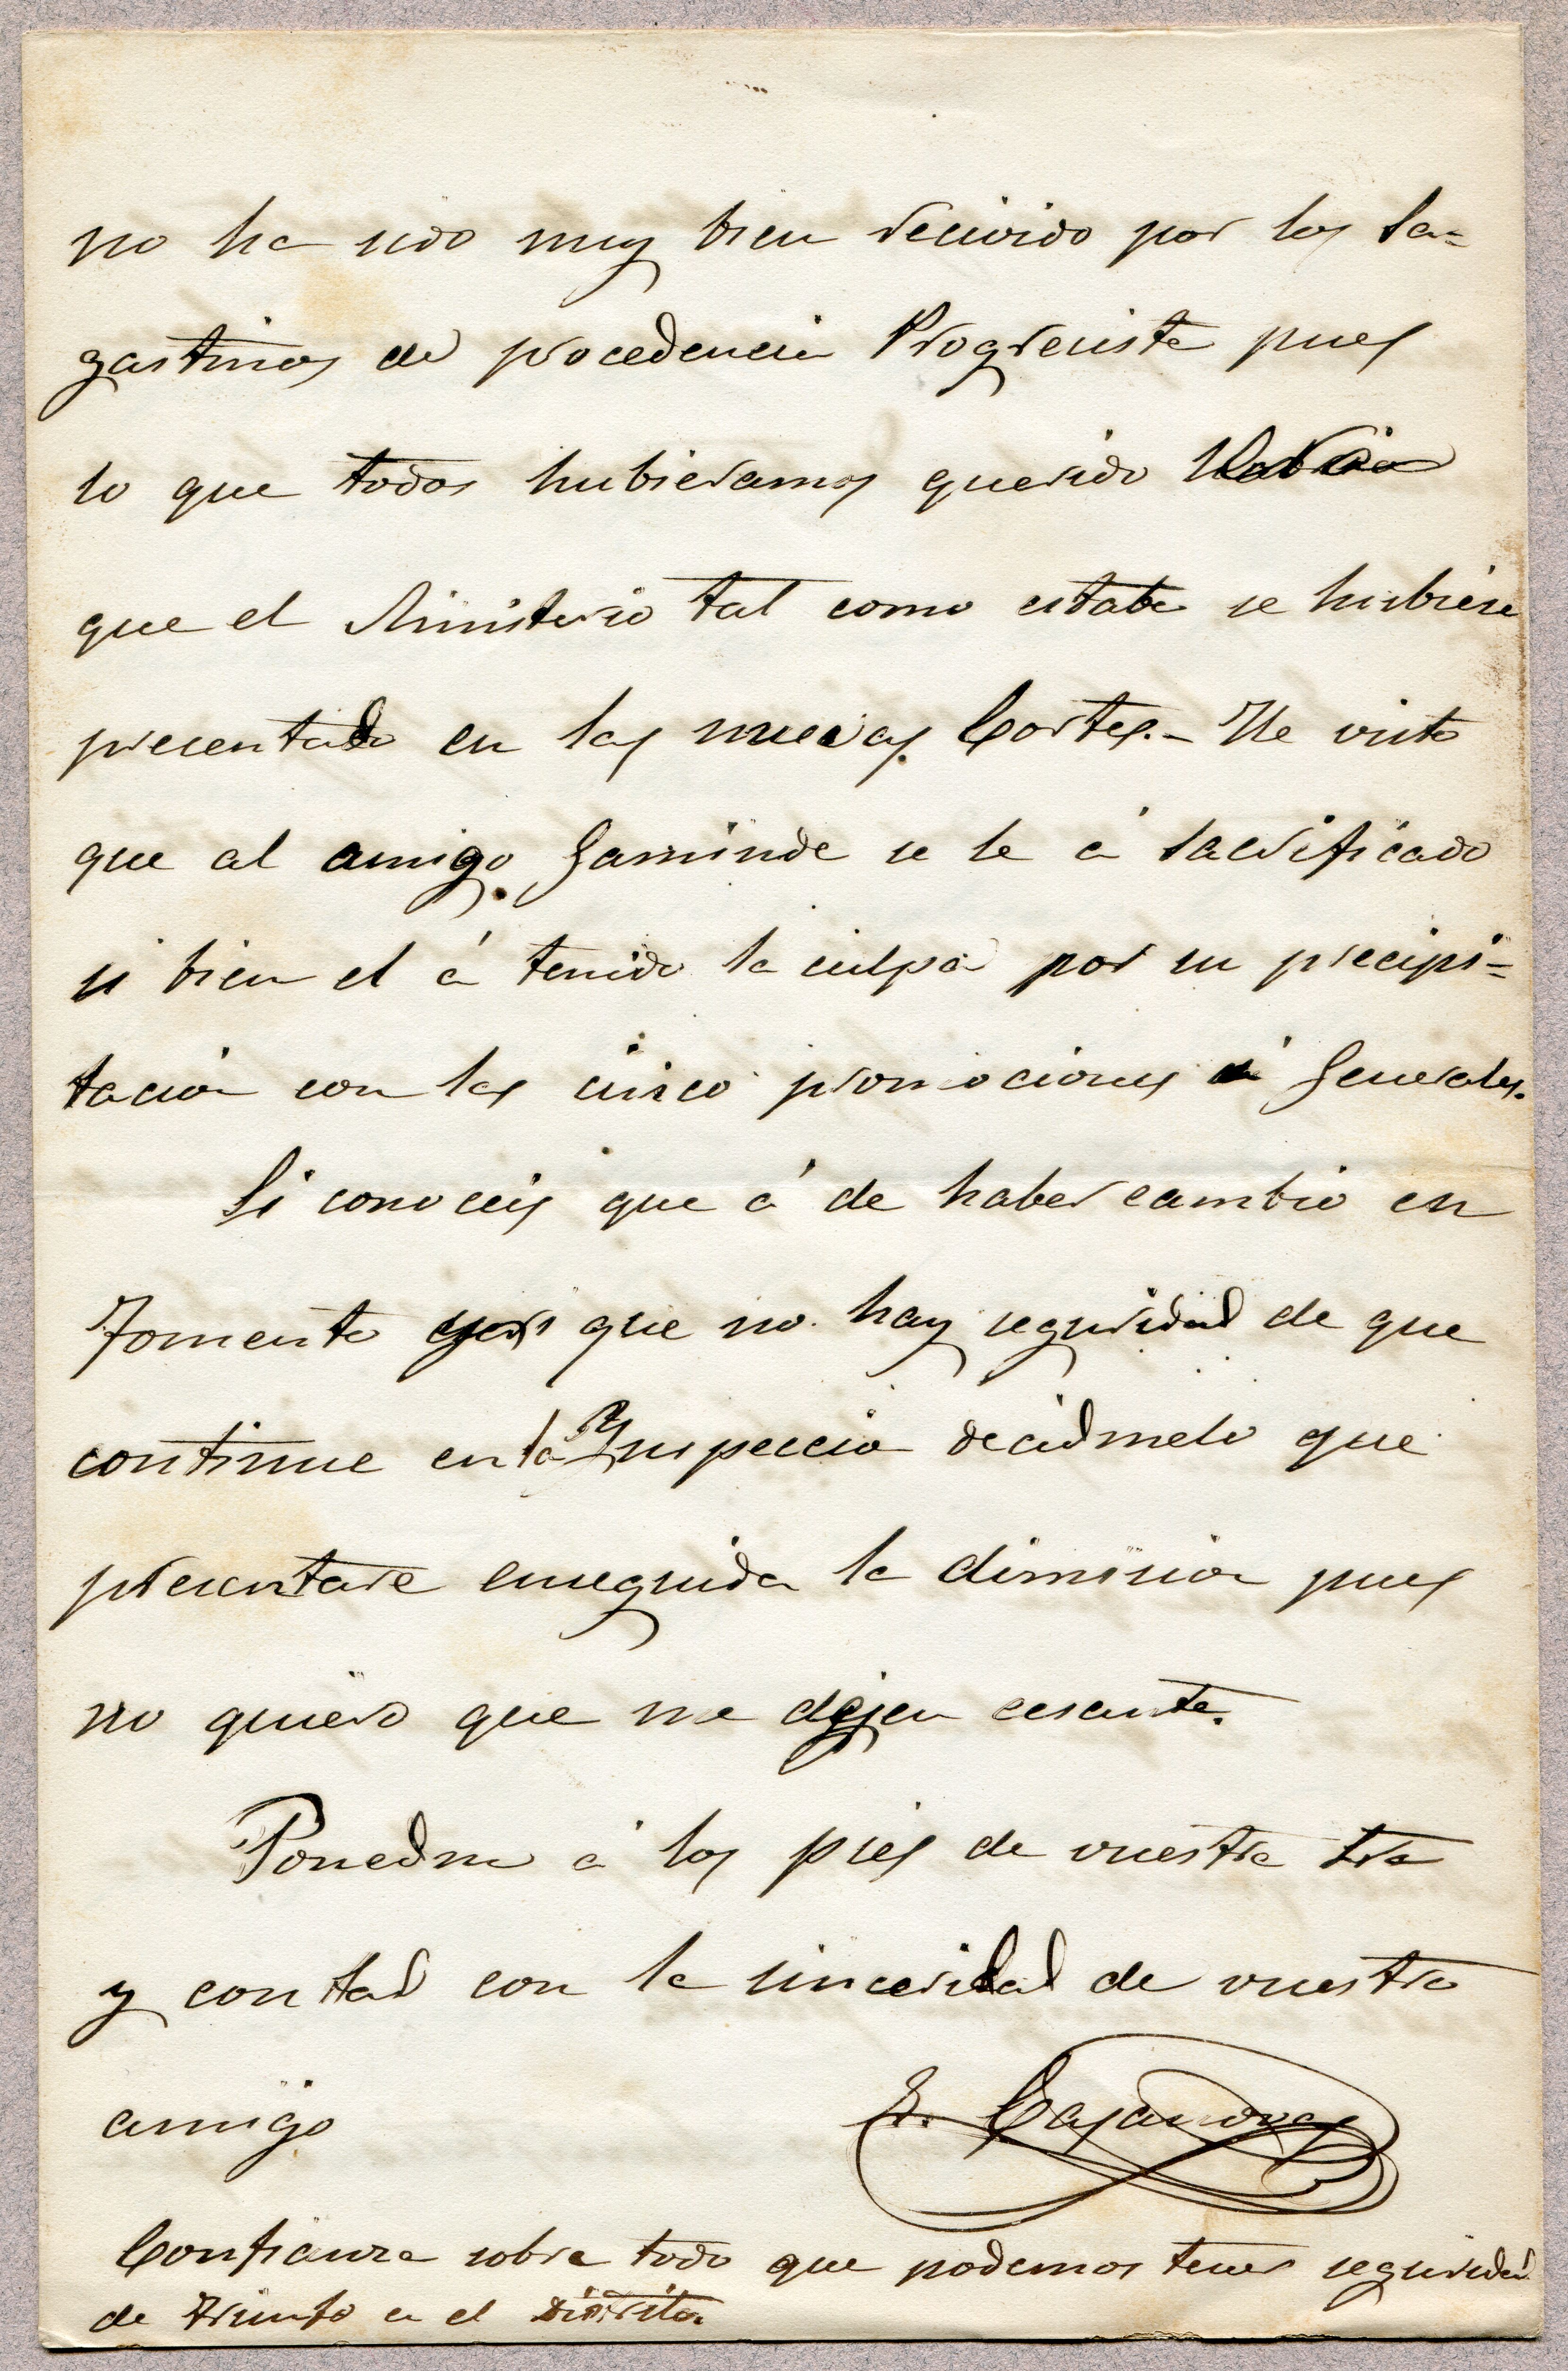 no ha sido muy bien recivido por los Sa=
gastinos de procedencia Progresista pues
lo que todos hubieramos querido
que el Ministerio tal como estaba se hubiese
presentado en las nuevas Cortes.- He visto
que al amigo Gaminde se le á sacrificado
si bien el á tenido la culpa por su precipi=
tación con las cinco promociones á Generales.
Si conoceis que á de haber cambio en
Fomento y que no hay seguridad de que
continue en la Ynspeccion decidmelo que
presentare enseguida la dimision pues
no quiero que me dejen cesante.
Ponedme á los pies de vuestra Sra
y contad con la sinceridad de vuestro
amigo
E. Casanovas
Confianza sobre todo que podemos tener seguridad
de triunfo en el Distrito.